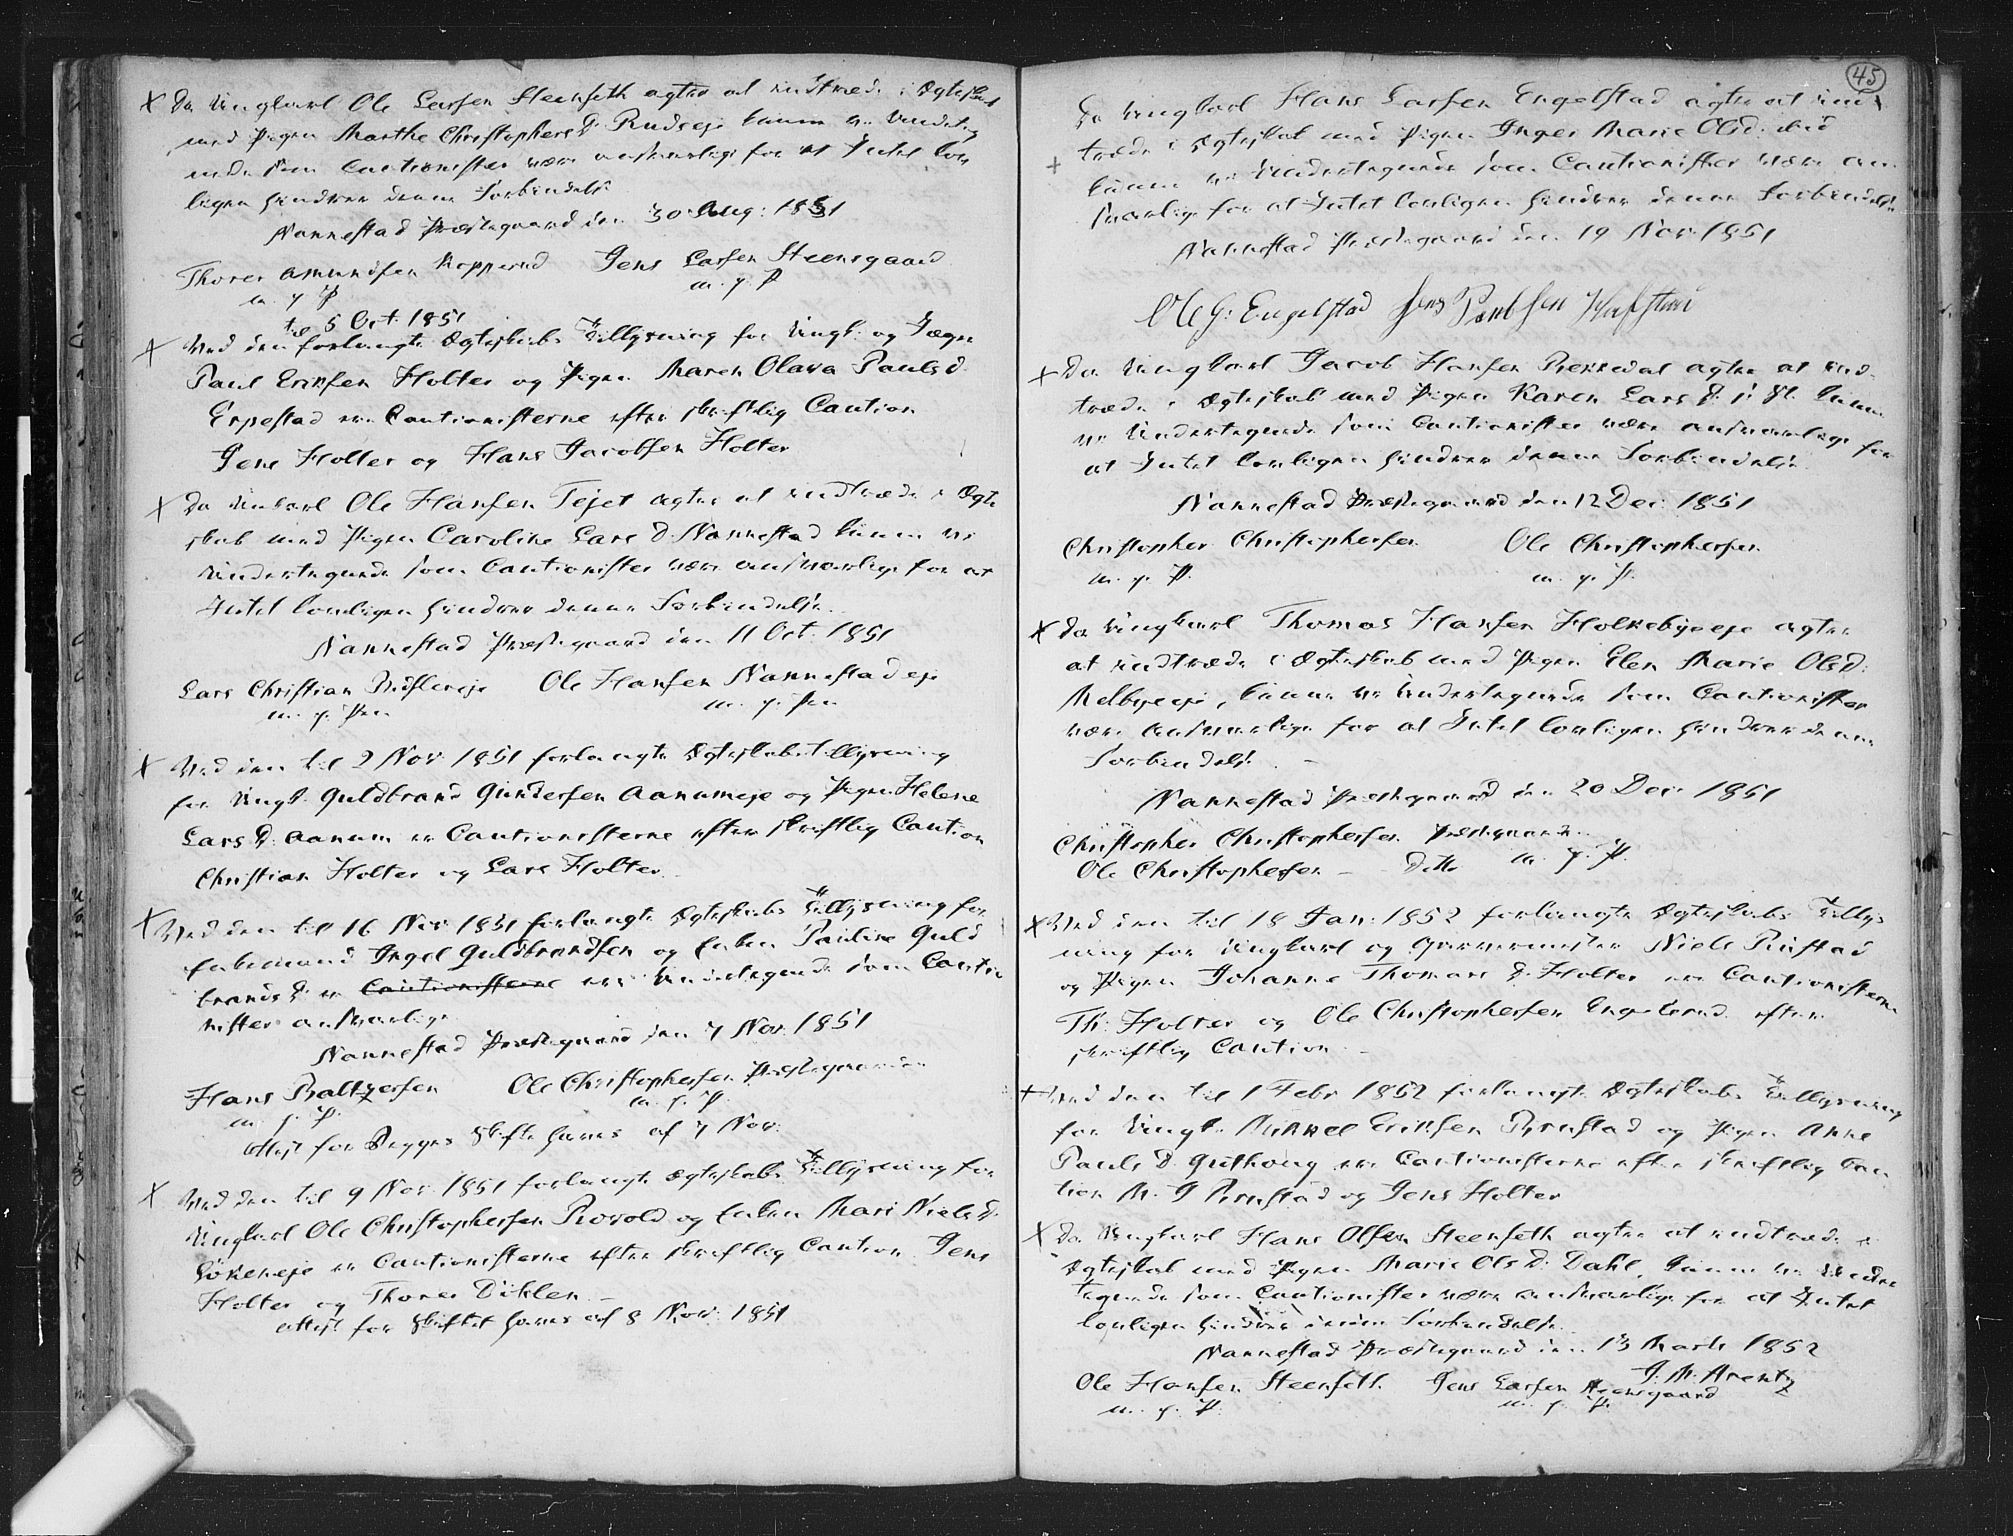 Da Ungkarl Ole Larsen Steenseth agter at indtræde i Ægteskab
med Pigen Marthe Christophers D. Rudseje kunne vi Underteg
nede som Cautionister være ansvarlige for at Intet lov
ligen hindrer denne Forbindelse
Nannestad Præstegaard den 30 Aug: 1851
Thorer Amundsen Kopperud Jens Larsen Steensgaard
m. p. P. m. p. P
til 5 Oct. 1851
Ved den forlangte Ægteskabs Tillysning for Ungk. og
Paul Eriksen Holter og Pigen Maren Olava Paulsd.
Erpestad ere Cautionisterne efter skriftlig Caution
Jens Holter og Hans Jacobsen Holter
Da Unkarl Ole Hansen Tejet agter at indtræde i Ægte
skab med Pigen Caroline Lars D. Nannestad kunne vi
Undertegnede som Cautionister være ansvarlige for at
Intet lovligen hindrer denne Forbindelse.
Nannestad Præstegaard den 11 Oct. 1851
Lars Christian Ole Hansen Nannestadeje
m. p. Pen m. p. Pen
Ved den til 2 Nov. 1851 forlangte Ægteskabstillysning
for Ungk. Guldbrand Gundersen Aanumeje og Pigen Helene
Lars D. Aanum er Cautionisterne efter skriftlig Caution
Christian Holter og Lars Holter.
Ved den til 16 Nov. 1851 forlangte Ægteskabs Tillysning for
Enkemand Ingel Guldbrandsen og Enken Pauline Guld
brands D. er Cautionisterne ere Undertegnede som Cautio
nister ansvarlige
Nannestad Præstegaard den 7 Nov. 1851
Hans Baltzersen Ole Christophersen Præstegaarden
m. p. P. m. p. P.
Attest for Begges Skifte haves af 7 Nov:
Ved den til 9 Nov. 1851 forlangte Ægteskabs Tillysning for
Ungkarl Ole Christophersen Rovold og Enken Mari Niels D.
er Cautionisterne efter skriftlig Caution Jens
Holter og Thorer Diklen.
Attest for Skiftet haves af 8 Nov. 1851
45
Da Ungkarl Hans Larsen Engelstad agter at ind
træde i Ægteskab med Pigen Inger Marie Olsd. ibid
kunne vi Undertegnede som Cautionister være an
svarlige for at Intet lovligen hindrer denne Forbindelse
Nannestad Præstegaard den 19 Nov. 1851
Ole G: Engelstad Jens Paulsen
Da Ungkarl Jacob Hansen Rekkedal agter at ind
træde i Ægteskab med Pigen Karen Lars D. kunne
vi Undertegnede som Cautionister være ansvarlige for
at Intet lovligen hindrer denne Forbindelse.
Nannestad Præstegaard den 12 Dec. 1851
Christopher Christophersen Ole Christophersen
m. p. P. m. p. P.
Da Ungkarl Thomas Hansen Holkebyeeje agter
at indtræde i Ægteskab med Pigen Elen Marie Olsd.
Melbyeeje, kunne vi Undertegnede som Cautionister
være ansvarlige for at Intet lovligen hindrer denne
Forbindelse.
Nannestad Præstegaard den 20 Dec. 1851
Christopher Christophersen Præstegaarden
Ole Christophersen — Ditto m. p. P.
Ved den til 18 Jan. 1852 forlangte Ægteskabs Tillys
ning for Ungkarl og Garvermester Niels Rustad
og Pigen Johanne Thomas D. Holter ere Cautionisterne
Th: Holter og Ole Christophersen Engelsrud efter
skriftlig Caution.
Ved den til 1 Febr. 1852 forlangte Ægteskabs Tillysning
for Ungk. Mikkel Eriksen Bjrnstad og Pigen Anne
Pauls D. Guthong ere Cautionisterne efter skriftlig Cau
tion M. G. og Jens Holter
Da Ungkarl Hans Olsen Steenseth agter at indtræde i
Ægteskab med Pigen Marie Ols D. Dahl, kunne vi Under
tegnede som Cautionister være ansvarlige for at Intet
lovligen hindrer denne Forbindelse.
Nannestad Præstegaard den 13 Marts 1852
J. M. Arentz
Ole Hansen Steenseth. Jens Larsen Steensgaard
m. p. P. m. p. P.